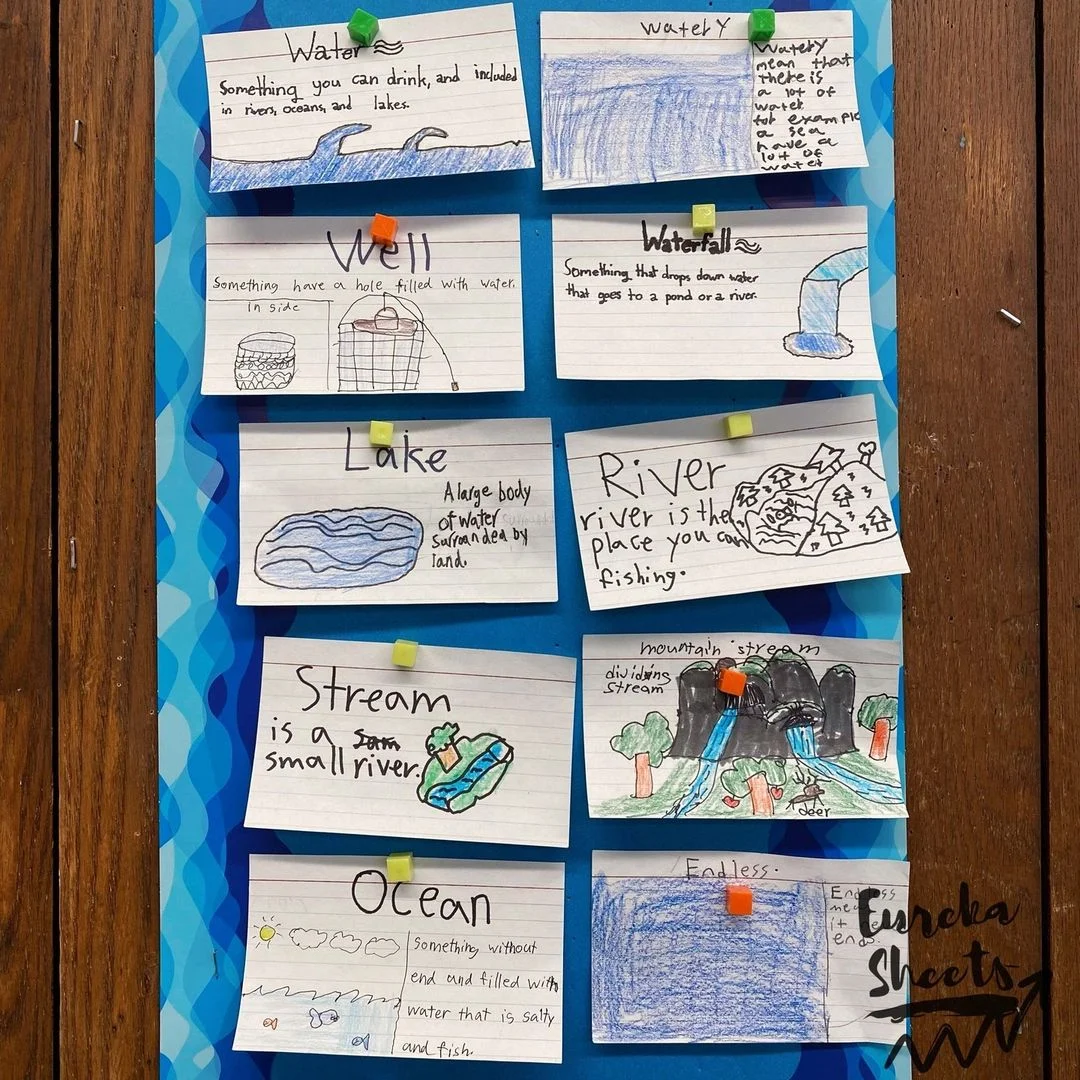 Water
Something you can drink, and included
in rivers, oceans, and lakes.
Watery
Watery
mean that
there is
a lot of
water
for example
a sea
have a
lot of
water
Well
Something have a hole filled with water.
In side
Waterfall
Something that drops down water
that goes to a pond or a river.
Lake
A large body
of water
surrounded by
land.
River
river is the
place you can
fishing.
Stream
is a
small river.
mountain stream
dividing
stream
deer
Ocean
Something without
end and filled with
water that is salty
and fish.
Endless.
Endless
it
ends.
Eureka
Sheets